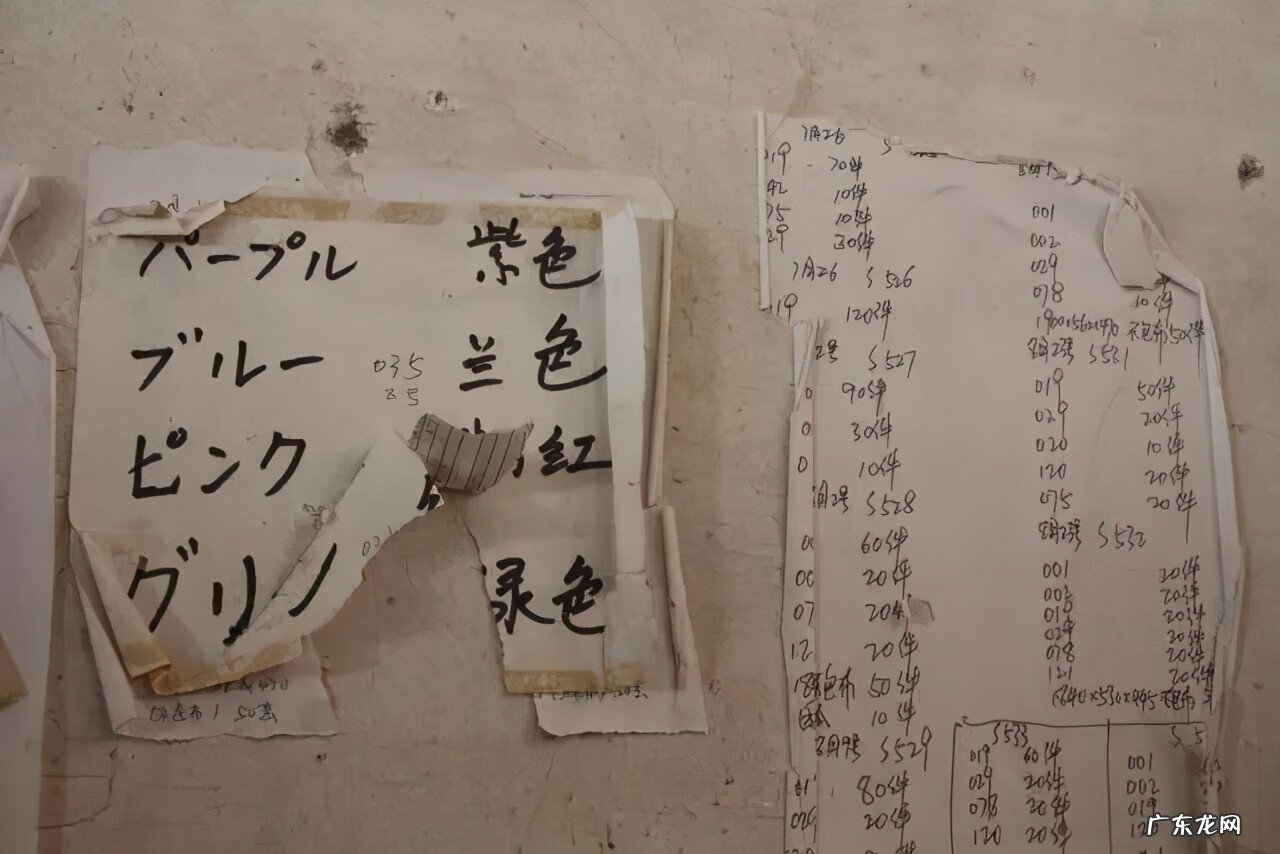 パープル 紫色
ブルー 035 兰色
ピンク 红
グリ 绿色
50套
7月26
19 70件
42 10件
75 10件
29 30件
7月26 S526
19 120件
2号 S527
0 90件
0 30件
0 10件
月2号 S528
00 60件
00 20件
07 20件
12 20件
包布 50件
10件
8月9号 S529
01 80件
029 20件
001
002
029
078 10件
1900×562×490 50件
8月2号 S531
019 50件
029 20件
020 10件
120 20件
075 20件
8月2号 S532
001 20件
002 20件
019 20件
029 20件
078 20件
121 20件
1840×530×495
S533
019 60件
029 20件
078 20件
120 20件
001
002
019
广东龙网